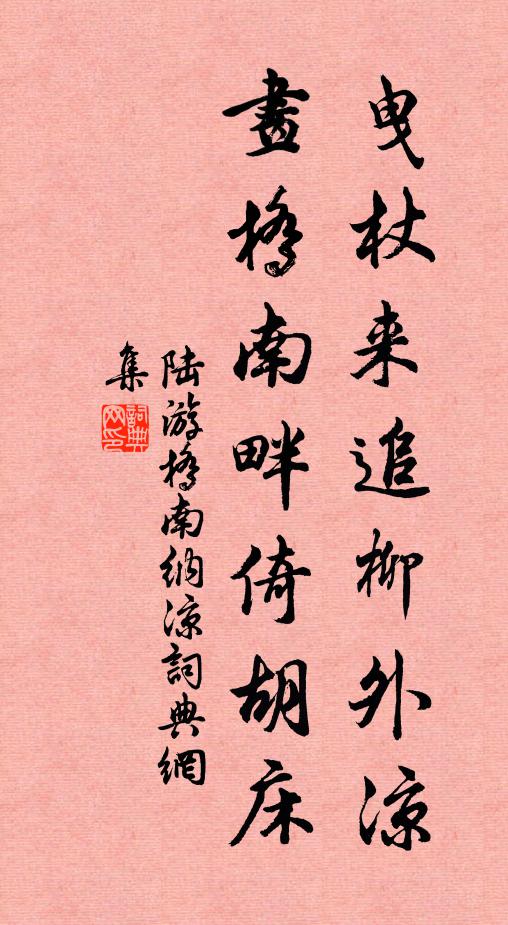 曳杖来追柳外涼
畫橋南畔倚胡床
陆游橋南納涼詞典網
集
詞典网印